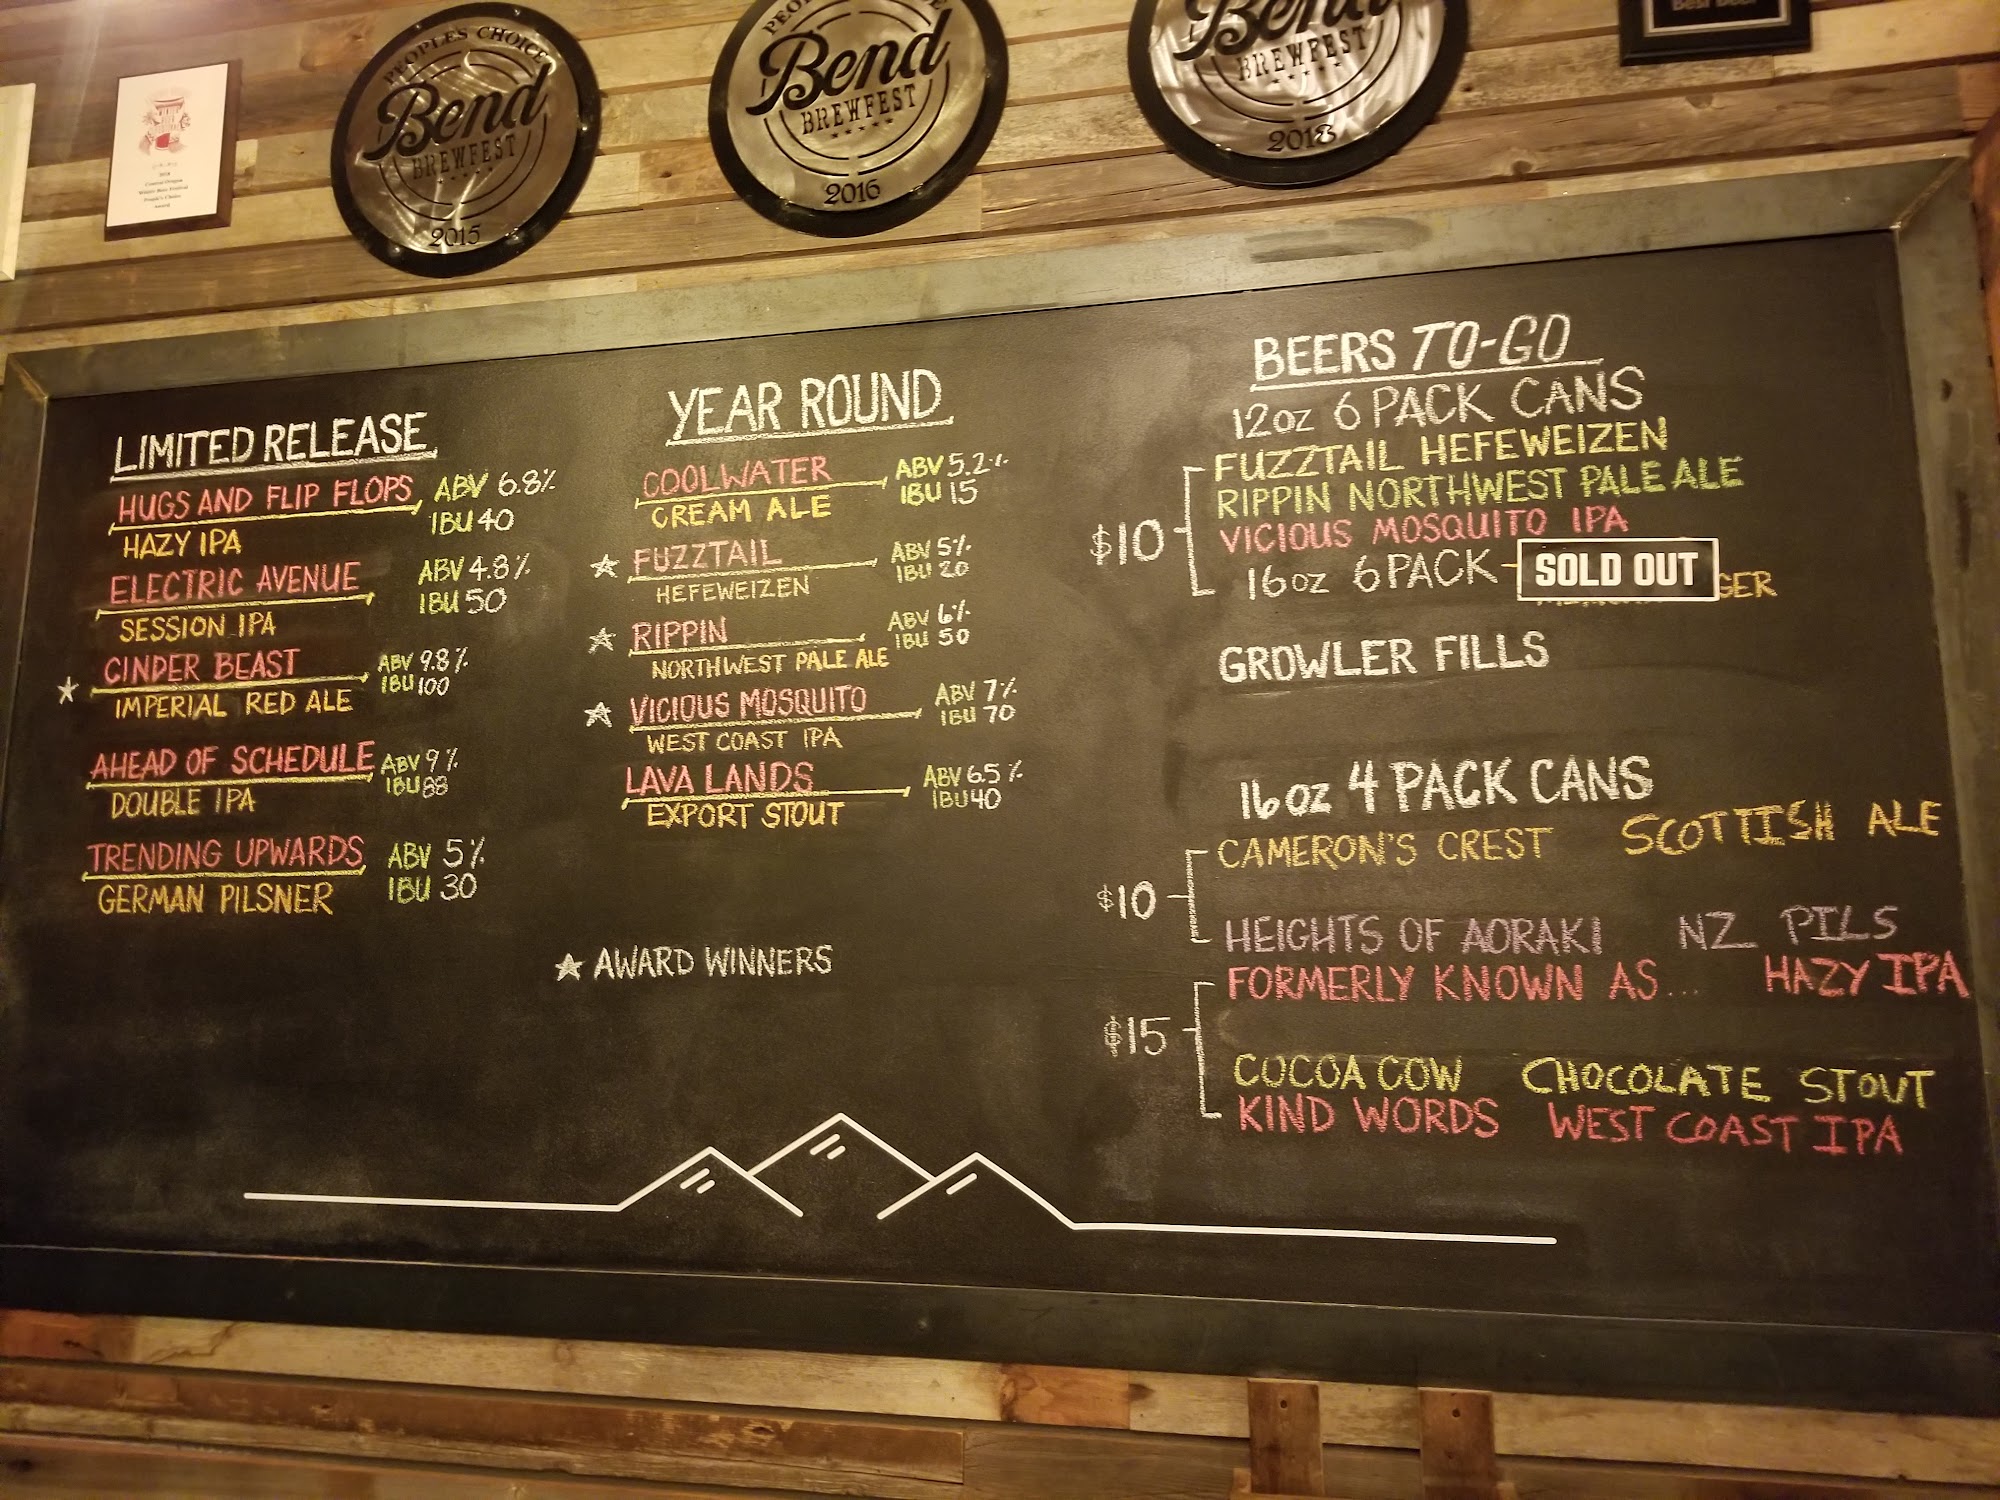 PEOPLES CHOICE
Bend
BREWFEST
2015
Bend
BREWFEST
2016
Bend
BREWFEST
2018
Best Beer
2018
Central Oregon
Winter Beer Festival
People's Choice
Award
LIMITED RELEASE
HUGS AND FLIP FLOPS ABV 6.8%
IBU 40
HAZY IPA
ELECTRIC AVENUE ABV 4.8%
IBU 50
SESSION IPA
CINDER BEAST ABV 9.8%
IBU 100
IMPERIAL RED ALE
AHEAD OF SCHEDULE ABV 9%
IBU 88
DOUBLE IPA
TRENDING UPWARDS ABV 5%
IBU 30
GERMAN PILSNER
YEAR ROUND
COOLWATER ABV 5.2%
IBU 15
CREAM ALE
FUZZTAIL ABV 5%
IBU 20
HEFEWEIZEN
RIPPIN ABV 6%
IBU 50
NORTHWEST PALE ALE
VICIOUS MOSQUITO ABV 7%
IBU 70
WEST COAST IPA
LAVA LANDS ABV 6.5%
IBU 40
EXPORT STOUT
AWARD WINNERS
BEERS TO-GO
12oz 6 PACK CANS
FUZZTAIL HEFEWEIZEN
RIPPIN NORTHWEST PALE ALE
$10 VICIOUS MOSQUITO IPA
16oz 6 PACK - SOLD OUT
GROWLER FILLS
16oz 4 PACK CANS
CAMERON'S CREST SCOTTISH ALE
$10
HEIGHTS OF AORAKI NZ PILS
FORMERLY KNOWN AS... HAZY IPA
$15
COCOA COW CHOCOLATE STOUT
KIND WORDS WEST COAST IPA